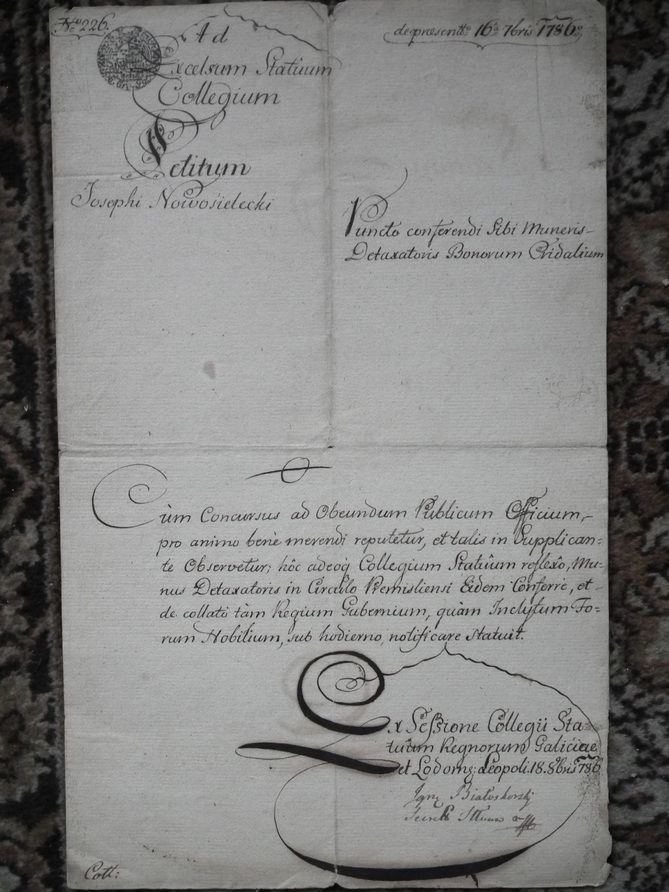 No 226.
de praesent: 16a 7bris 1786.
Ad
Excelsum Statuum
Collegium
Petitum
Josephi Nowosielecki
Puncto conferendi Sibi Muneris
Detaxatoris Bonorum Cridalium
Cùm Concursus ad Obeundum Publicum Officium,
pro animo benè merendi reputetur, et talis in Supplican=
te Observetur; hôc adeoq Collegium Statuum reflexo, Mu=
nus Detaxatoris in Circulo Premisliensi Eidem Conferre, et
de collato tàm Regium Gubernium, quàm Inclytum Fo=
rum Nobilium, sub hodierno, notificare Statuit.
Ex Seßione Collegii Sta
tuum Regnorum Galiciae
et Lodom: Leopoli. 18. 8bris 786
Coll: